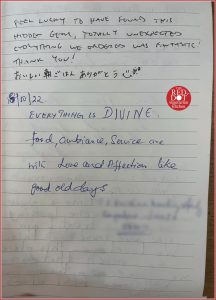 FEEL LUCKY TO HAVE FOUND THIS
HIDDEN GEM, TOTALLY UNEXPECTED
EVERYTHING WE ORDERED WAS FANTASTIC!
THANK YOU!
おいしい朝ごはん ありがとう
8/10/22
EVERYTHING IS DIVINE.
food, ambiance, Service are
with Love and Affection like
good old days
RED
DOT